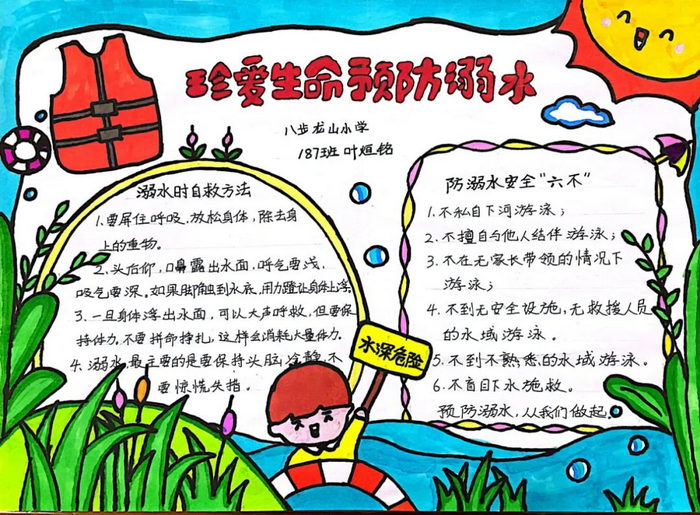 珍爱生命预防溺水
八步龙山小学
187班 叶烜铭
溺水时自救方法
1.要屏住呼吸、放松身体,除去身
上的重物。
2.头后仰,口鼻露出水面,呼气要浅,
吸气要深。如果脚触到水底,用力蹬让身体上浮
3.一旦身体浮出水面,可以大声呼救,但要保
持体力,不要拼命挣扎,这样会消耗大量体力。
4.溺水,最主要的是要保持头脑冷静,不
要惊慌失措。
水深危险
防溺水安全“六不”
1.不私自下河游泳;
2.不擅自与他人结伴游泳;
3.不在无家长带领的情况下
游泳;
4.不到无安全设施,无救援人员
的水域游泳。
5.不到不熟悉的水域游泳。
6.不盲目下水施救。
预防溺水,从我们做起。